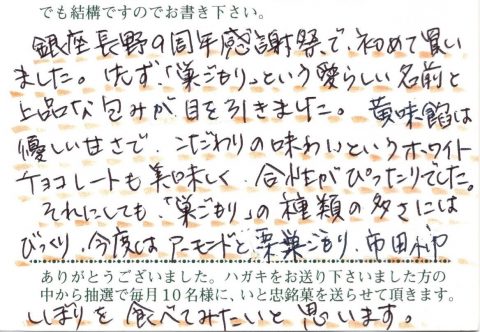 でも結構ですのでお書き下さい。
銀座長野9周年感謝祭で、初めて買い
ました。はず、「巣ごもり」という愛らしい名前と
上品な包みが目を引きました。 黄味餡は
優しい甘さで、こだわりの味わいというホワイト
チョコレートも美味しく、合性がぴったりでした。
それにしても、「巣ごもり」の種類の多さには
びっくり、今度はアーモンドと栗巣ごもり、市田柿
ありがとうございました。ハガキをお送り下さいました方の
中から抽選で毎月10名様に、いと忠銘菓を送らせて頂きます。
しぼりを食べてみたいと思います。